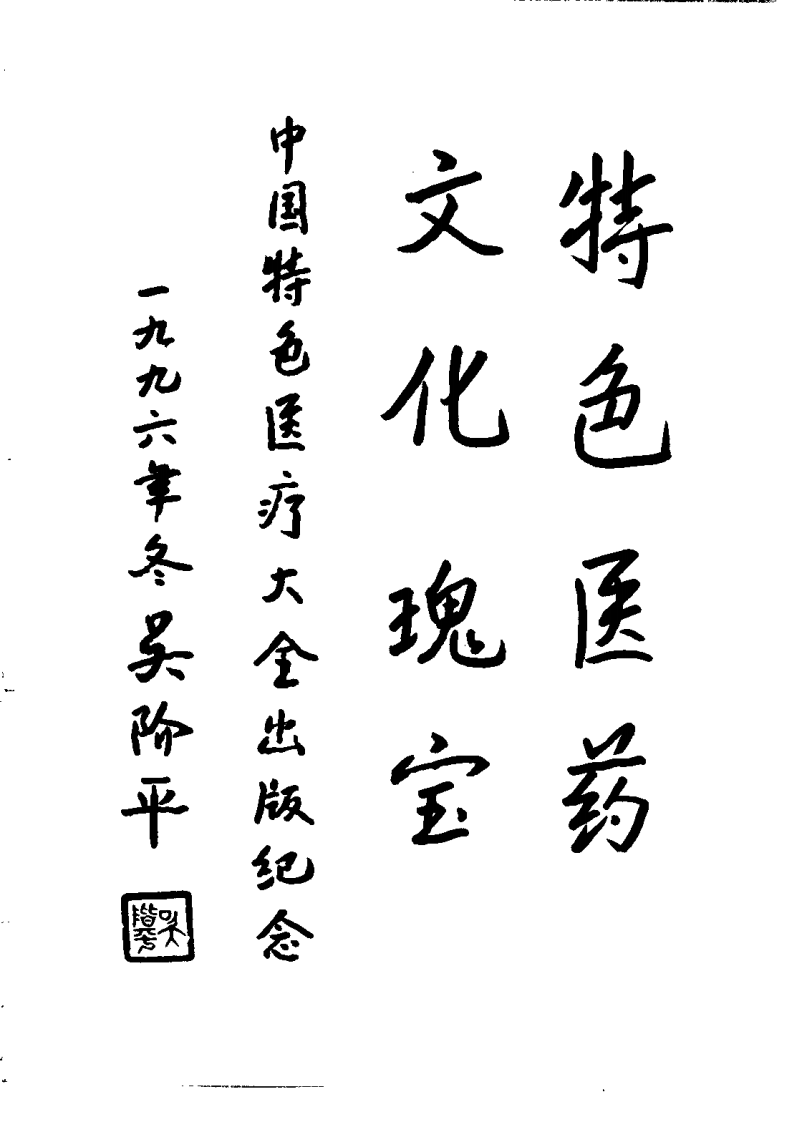 特色医药
文化瑰宝
中国特色医疗大全出版纪念
一九九六年冬吴阶平
吴阶平